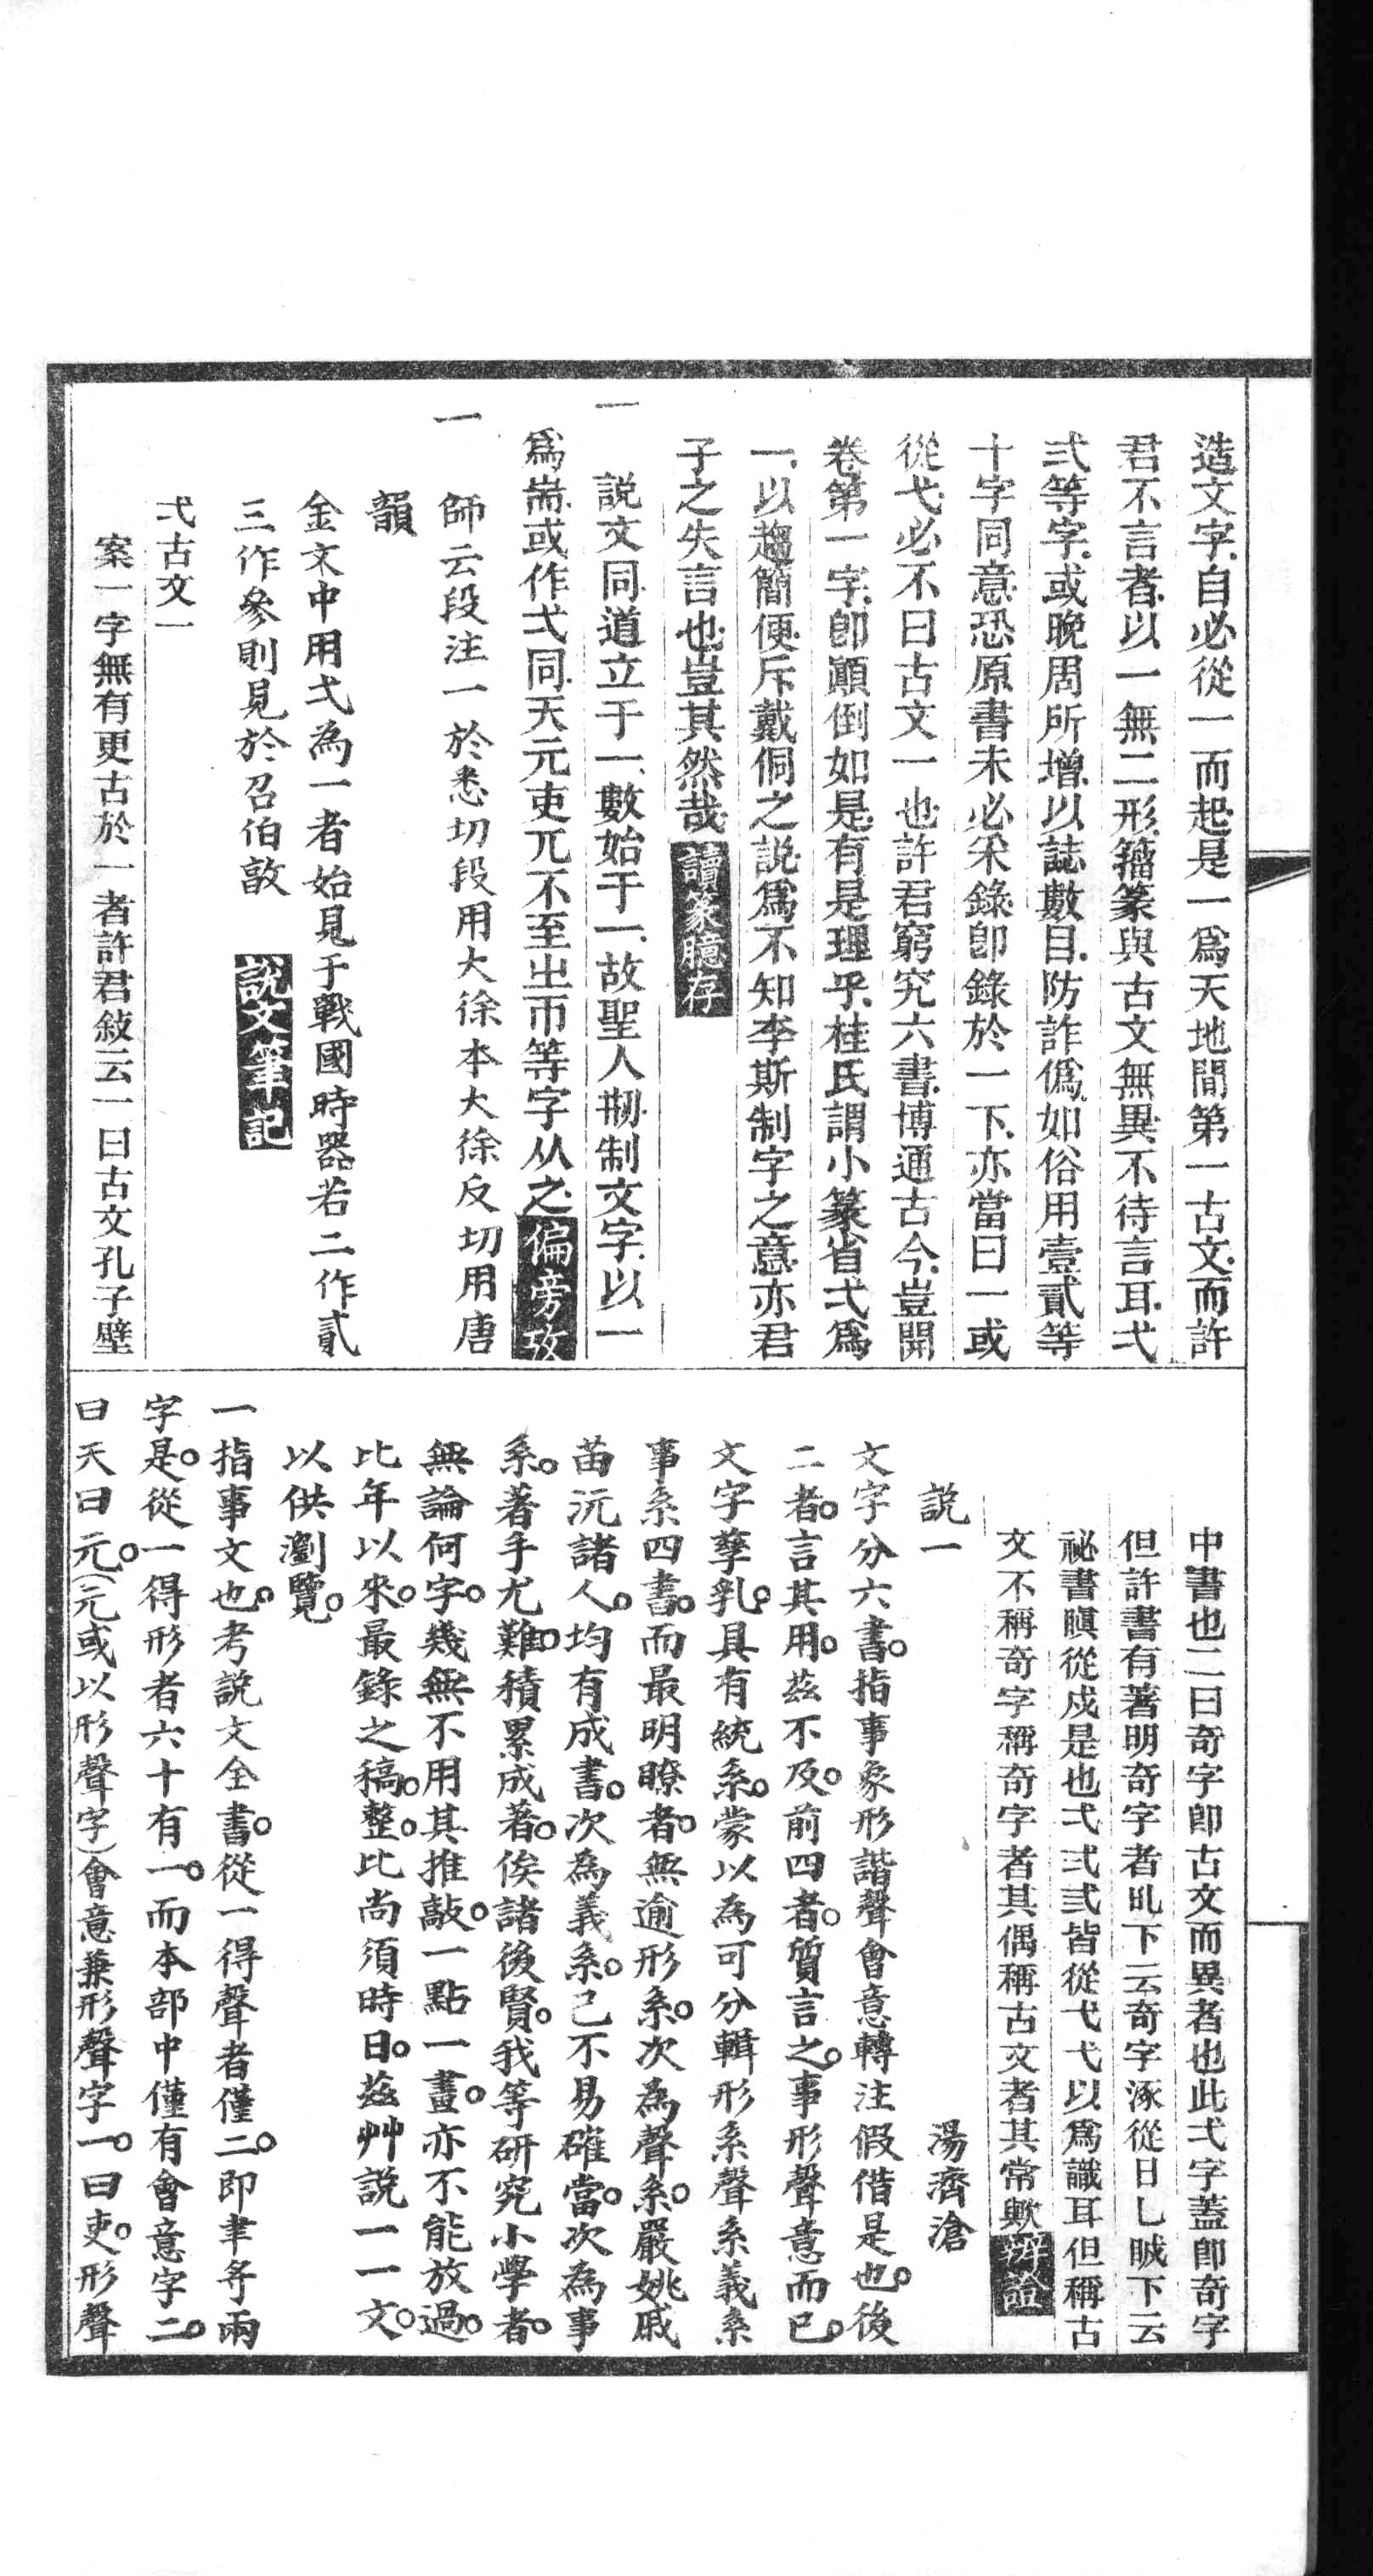 造文字自必從一而起是一爲天地間第一古文而許
君不言者以一無二形籒篆與古文無異不待言耳弌
弍等字或晚周所增以誌數目防詐僞如俗用壹貳等
十字同意恐原書未必釆錄卽錄於一下亦當曰一或
從弋必不曰古文一也許君窮究六書博通古今豈開
卷第一字卽顚倒如是有是理乎桂氏謂小篆省弌爲
一以趨簡便斥戴侗之説爲不知李斯制字之意亦君
子之失言也豈其然哉讀篆臆存
一 説文同道立于一數始于一故聖人剏制文字以一
爲耑或作弌同天元吏兀不至㞢帀等字从之偏旁攷
一 師云段注一於悉切段用大徐本大徐反切用唐
韻
金文中用弌為一者始見于戰國時器若二作貳
三作參則見於召伯敦 説文筆記
弌古文一
案一字無有更古於一者許君敍云一曰古文孔子壁
中書也二曰奇字卽古文而異者也此弌字蓋卽奇字
但許書有著明奇字者乩下云奇字涿從日乚䀛下云
祕書瞋從戍是也弌弍弎皆從弋弋以爲識耳但稱古
文不稱奇字稱奇字者其偶稱古文者其常歟辨證
説一 湯濟滄
文字分六書。指事象形諧聲會意轉注假借是也。後
二者。言其用。茲不及。前四者。質言之。事形聲意而已。
文字孳乳。具有統系。蒙以為可分輯形系聲系義系
事系四書。而最明瞭者。無逾形系。次為聲系。嚴姚戚
苗沅諸人。均有成書。次為義系。已不易確當。次為事
系。著手尤難。積累成著。俟諸後賢。我等研究小學者。
無論何字。幾無不用其推敲。一點一畫。亦不能放過。
比年以來。最錄之稿。整。比尚須時日。茲艸説一一文。
以供瀏覽。
一指事文也。考説文全書。從一得聲者僅二。即聿㝵兩
字是。從一得形者六十有一。而本部中僅有會意字二。
曰天曰元。（元或以形聲字）會意兼形聲字一。曰吏。形聲